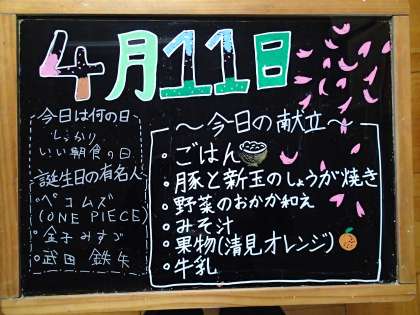 4月11日
今日は何の日
しっかり
いい朝食の日
誕生日の有名人
・ペコムズ
(ONE PIECE)
・金子みすゞ
・武田 鉄矢
～今日の献立～
・ごはん
・豚と新玉のしょうが焼き
・野菜のおかか和え
・みそ汁
・果物(清見オレンジ)
・牛乳